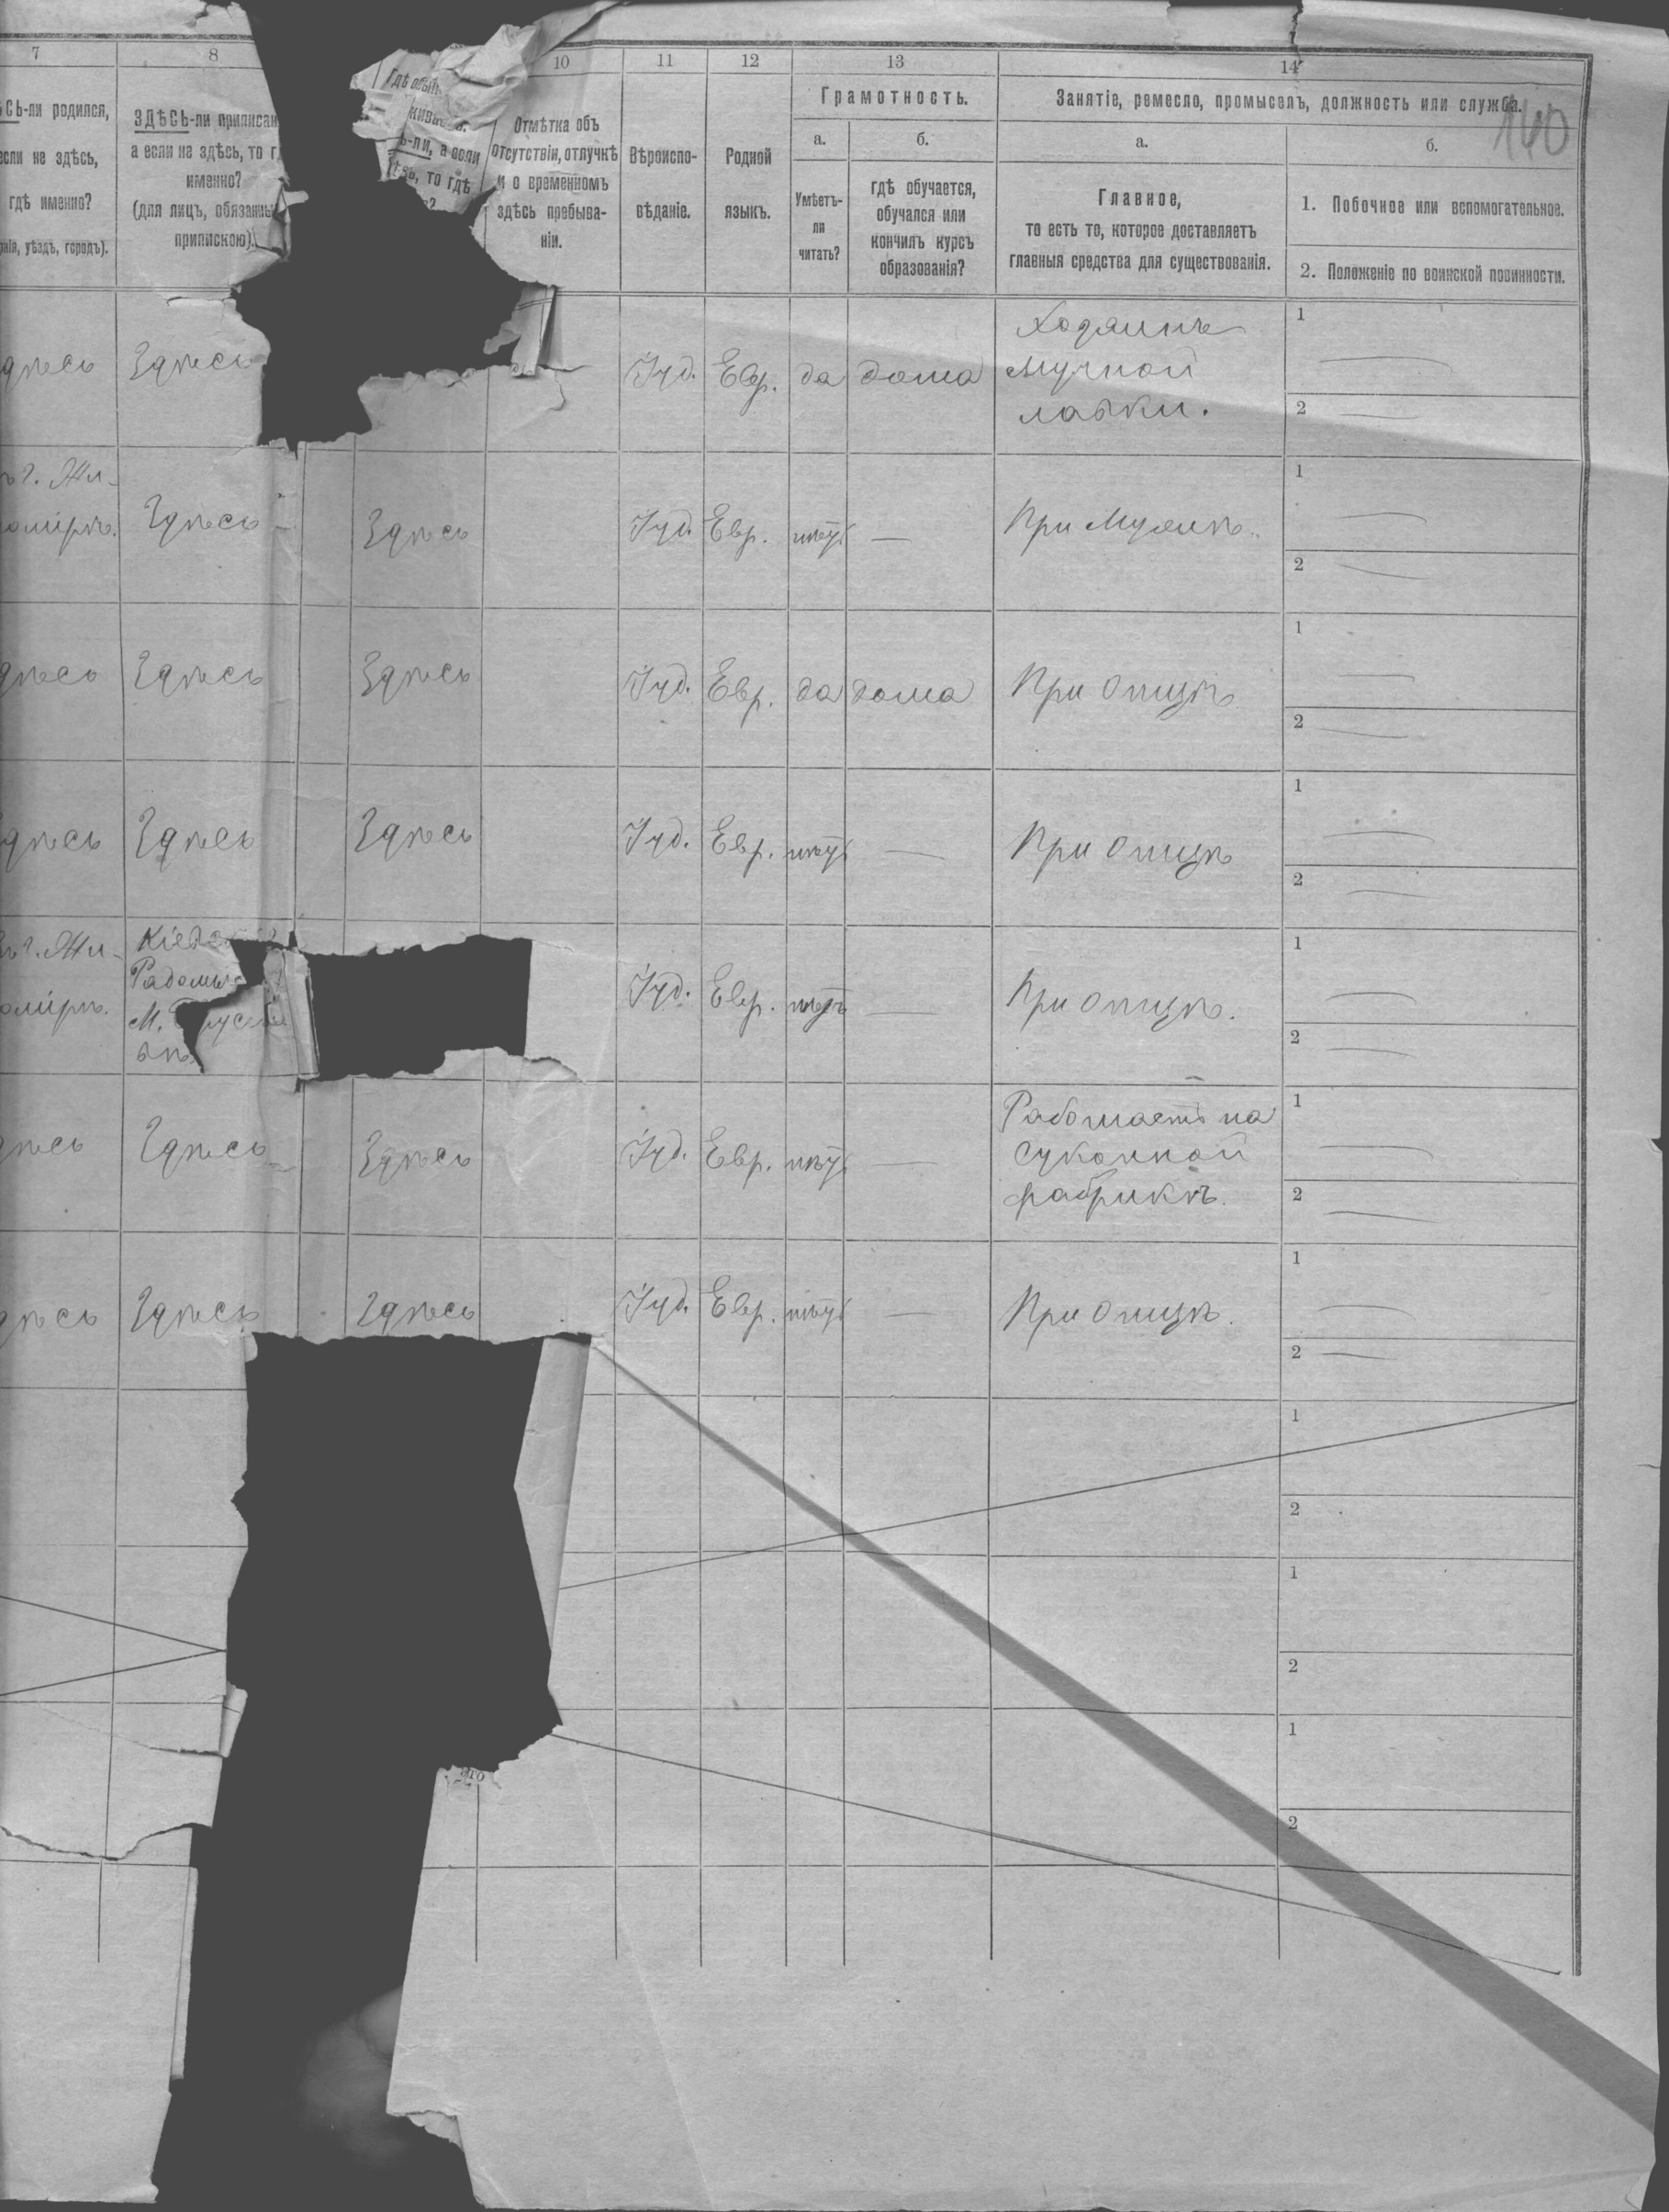 7 8 10 11 12 13 14
140
ѢСЬ-ли родился,
если не здѣсь,
гдѣ именно?
рнія, уѣздъ, городъ).
ЗДѢСЬ-ли приписан
а если не здѣсь, то г
именно?
(для лицъ, обязанны
припискою).
Гдѣ обык
ь-ли, а если
то гдѣ
Отмѣтка объ
отсутствіи, отлучкѣ
и о временномъ
здѣсь пребыва-
ніи.
Вѣроиспо-
вѣданіе.
Родной
языкъ.
Грамотность.
а. б.
Умѣетъ-
ли
читать?
гдѣ обучается,
обучался или
кончилъ курсъ
образованія?
Занятіе, ремесло, промыселъ, должность или служба.
а. б.
Главное,
то есть то, которое доставляетъ
главныя средства для существованія.
1. Побочное или вспомогательное.
2. Положеніе по воинской повинности.
дѣсь Здѣсь Іуд. Евр. да дома Хозяинъ
мучной
лавки.
1
2
ъ г. Жи-
омірѣ. Здѣсь Здѣсь Іуд. Евр. нѣтъ — При Мужѣ.
1
2
дѣсь Здѣсь Здѣсь Іуд. Евр. да дома При Отцѣ
1
2
дѣсь Здѣсь Здѣсь Іуд. Евр. нѣтъ — При Отцѣ
1
2
ъ г. Жи-
омірѣ. Кіевс
Радомы
М. Брусил
вѣ. Іуд. Евр. нѣтъ — При Отцѣ.
1
2
дѣсь Здѣсь Здѣсь Іуд. Евр. нѣтъ — Работаетъ на
Суконной
фабрикѣ.
1
2
дѣсь Здѣсь Здѣсь Іуд. Евр. нѣтъ — При Отцѣ.
1
2
1
2
1
2
1
2